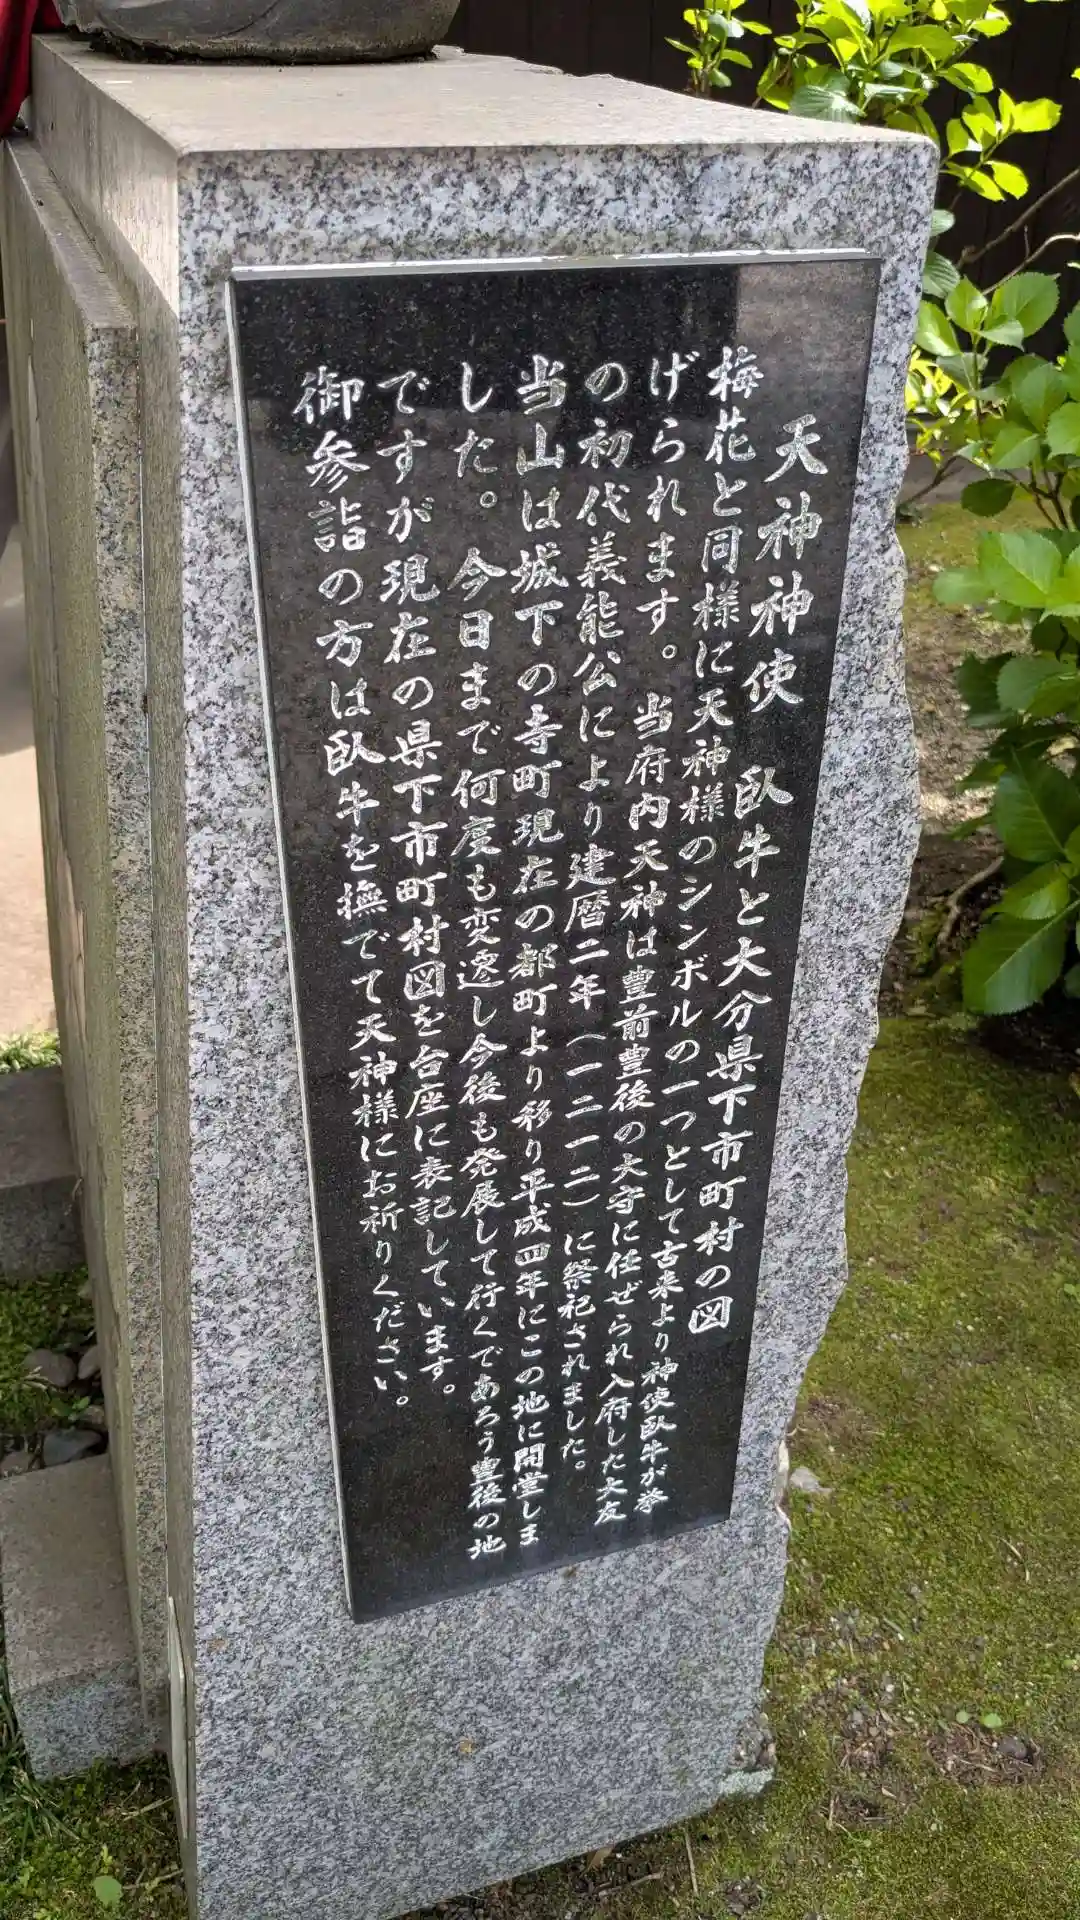 天神神使　臥牛と大分県下市町村の図
梅花と同様に天神様のシンボルの一つとして古来より神使臥牛が挙
げられます。　当府内天神は豊前豊後の大守に任ぜられ入府した大友
の初代義能公により建暦二年（一二一二）に祭祀されました。
当山は城下の寺町現在の都町より移り平成四年にこの地に開堂しま
した。今日まで何度も変遷し今後も発展して行くであろう豊後の地
ですが現在の県下市町村図を台座に表記しています。
御参詣の方は臥牛を撫でて天神様にお祈りください。